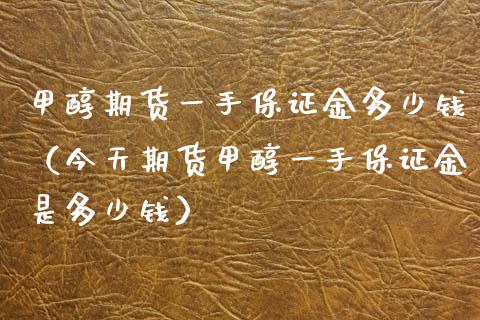 甲醇期货一手保证金多少钱
（今天期货甲醇一手保证金
是多少钱）